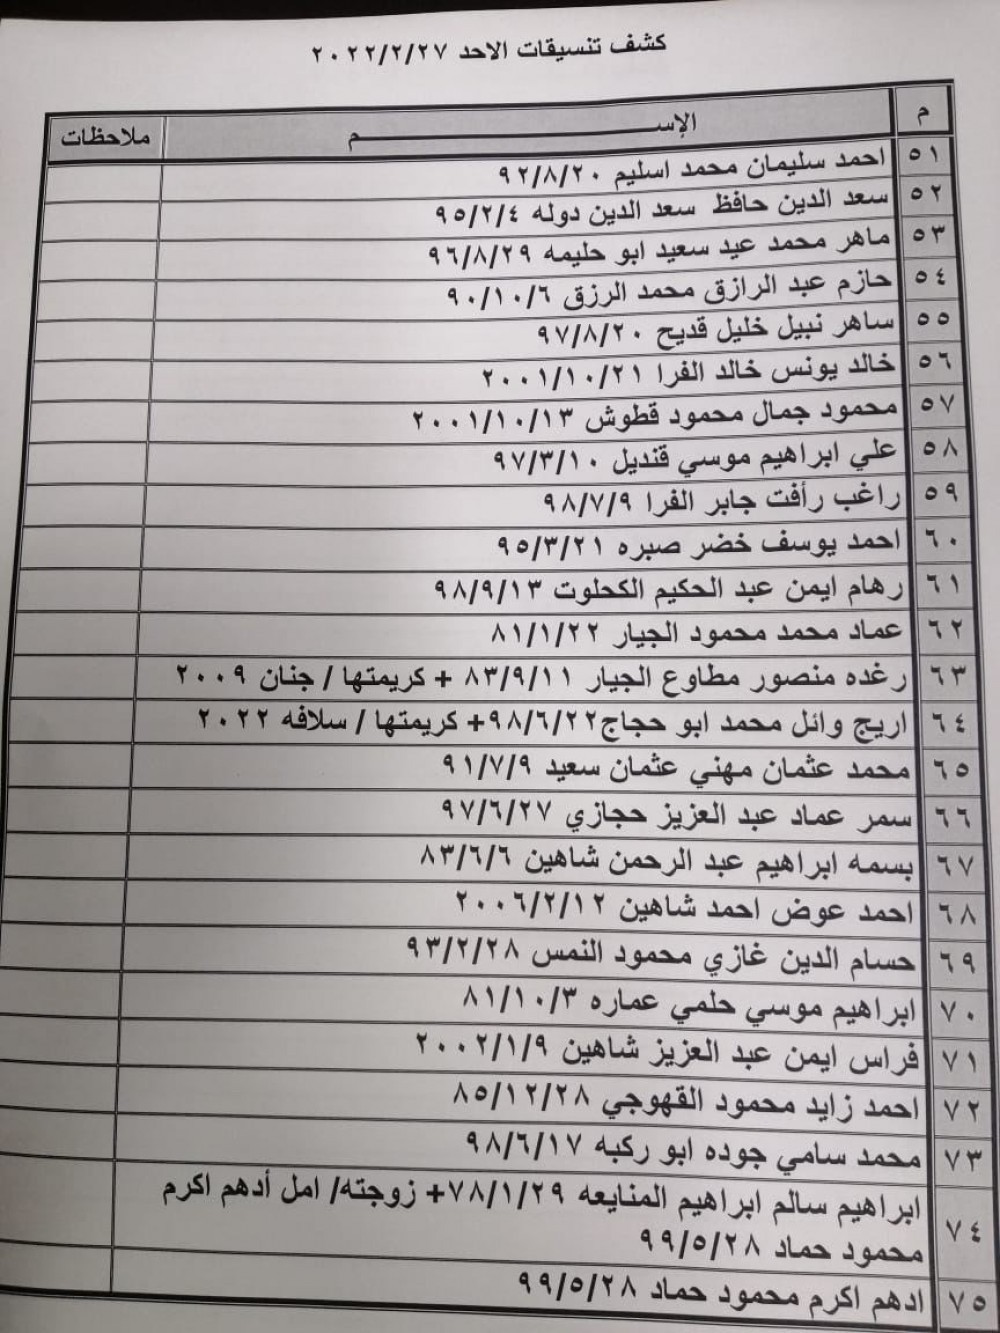 كشف تنسيقات الاحد ٢٠٢٢/٢/٢٧
م الإســـــــم ملاحظات
٥١ احمد سليمان محمد اسليم ٩٢/٨/٢٠
٥٢ سعد الدين حافظ سعد الدين دوله ٩٥/٢/٤
٥٣ ماهر محمد عيد سعيد ابو حليمه ٩٦/٨/٢٩
٥٤ حازم عبد الرازق محمد الرزق ٩٠/١٠/٦
٥٥ ساهر نبيل خليل قديح ٩٧/٨/٢٠
٥٦ خالد يونس خالد الفرا ٢٠٠١/١٠/٢١
٥٧ محمود جمال محمود قطوش ٢٠٠١/١٠/١٣
٥٨ علي ابراهيم موسي قنديل ٩٧/٣/١٠
٥٩ راغب رأفت جابر الفرا ٩٨/٧/٩
٦٠ احمد يوسف خضر صبره ٩٥/٣/٢١
٦١ رهام ايمن عبد الحكيم الكحلوت ٩٨/٩/١٣
٦٢ عماد محمد محمود الجيار ٨١/١/٢٢
٦٣ رغده منصور مطاوع الجيار ٨٣/٩/١١ + كريمتها / جنان ٢٠٠٩
٦٤ اريج وائل محمد ابو حجاج٩٨/٦/٢٢+ كريمتها / سلافه ٢٠٢٢
٦٥ محمد عثمان مهني عثمان سعيد ٩١/٧/٩
٦٦ سمر عماد عبد العزيز حجازي ٩٧/٦/٢٧
٦٧ بسمه ابراهيم عبد الرحمن شاهين ٨٣/٦/٦
٦٨ احمد عوض احمد شاهين ٢٠٠٦/٢/١٢
٦٩ حسام الدين غازي محمود النمس ٩٣/٢/٢٨
٧٠ ابراهيم موسي حلمي عماره ٨١/١٠/٣
٧١ فراس ايمن عبد العزيز شاهين ٢٠٠٢/١/٩
٧٢ احمد زايد محمود القهوجي ٨٥/١٢/٢٨
٧٣ محمد سامي جوده ابو ركبه ٩٨/٦/١٧
٧٤ ابراهيم سالم ابراهيم المنايعه ٧٨/١/٢٩+ زوجته/ امل أدهم اكرم
محمود حماد ٩٩/٥/٢٨
٧٥ ادهم اكرم محمود حماد ٩٩/٥/٢٨